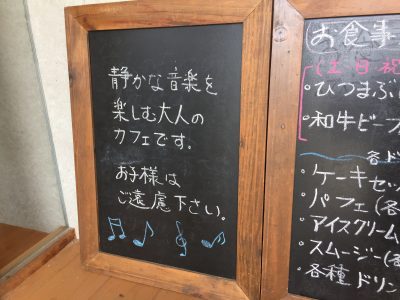 静かな音楽を
楽しむ大人の
カフェです。
お子様は
ご遠慮下さい。
お食事
(土日祝
・ひつまぶ
・和牛ビーフ
各ド
・ケーキセッ
・パフェ(各
・アイスクリーム
・スムージー(各
・各種ドリン